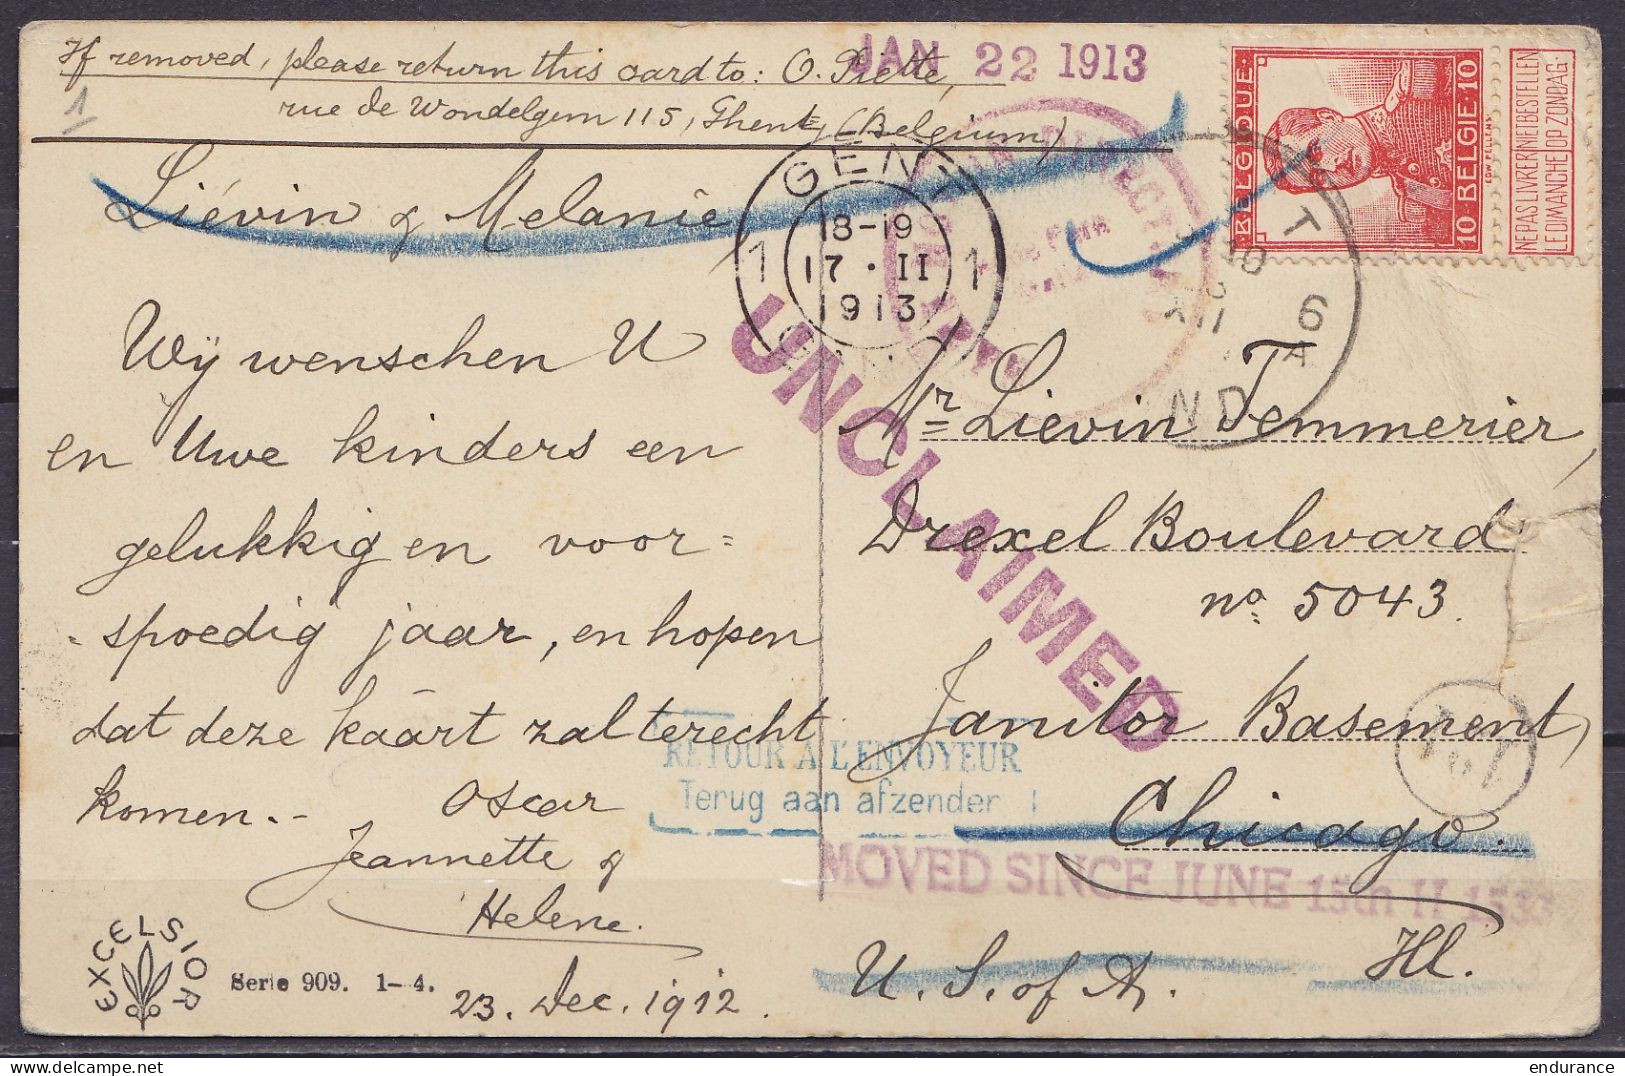 If removed, please return this card to: O. Piette,
rue de Wondelgem 115, Thent, (Belgium)
1
JAN 22 1913
Liévin & Melanie,
Wij wenschen U
en Uwe kinders een
gelukkig en voor=
spoedig jaar, en hopen
dat deze kaart zal terecht
komen.-
Oscar
Jeannette &
Helene.
23. Dec. 1912.
EXCELSIOR
Serie 909. 1-4.
GENT
1 18-19 1
17·II
1913
UNCLAIMED
BELGIQUE 10
10 BELGIE
EDW PELLENS
NE PAS LIVRER LE DIMANCHE
NIET BESTELLEN OP ZONDAG.
6
Mr Liévin Temmerier,
Drexel Boulevard
no. 5043.
Janitor Basement,
Chicago.
Ill.
U. S. of A.
RETOUR A L'ENVOYEUR
Terug aan afzender
MOVED SINCE JUNE 15th
endurance